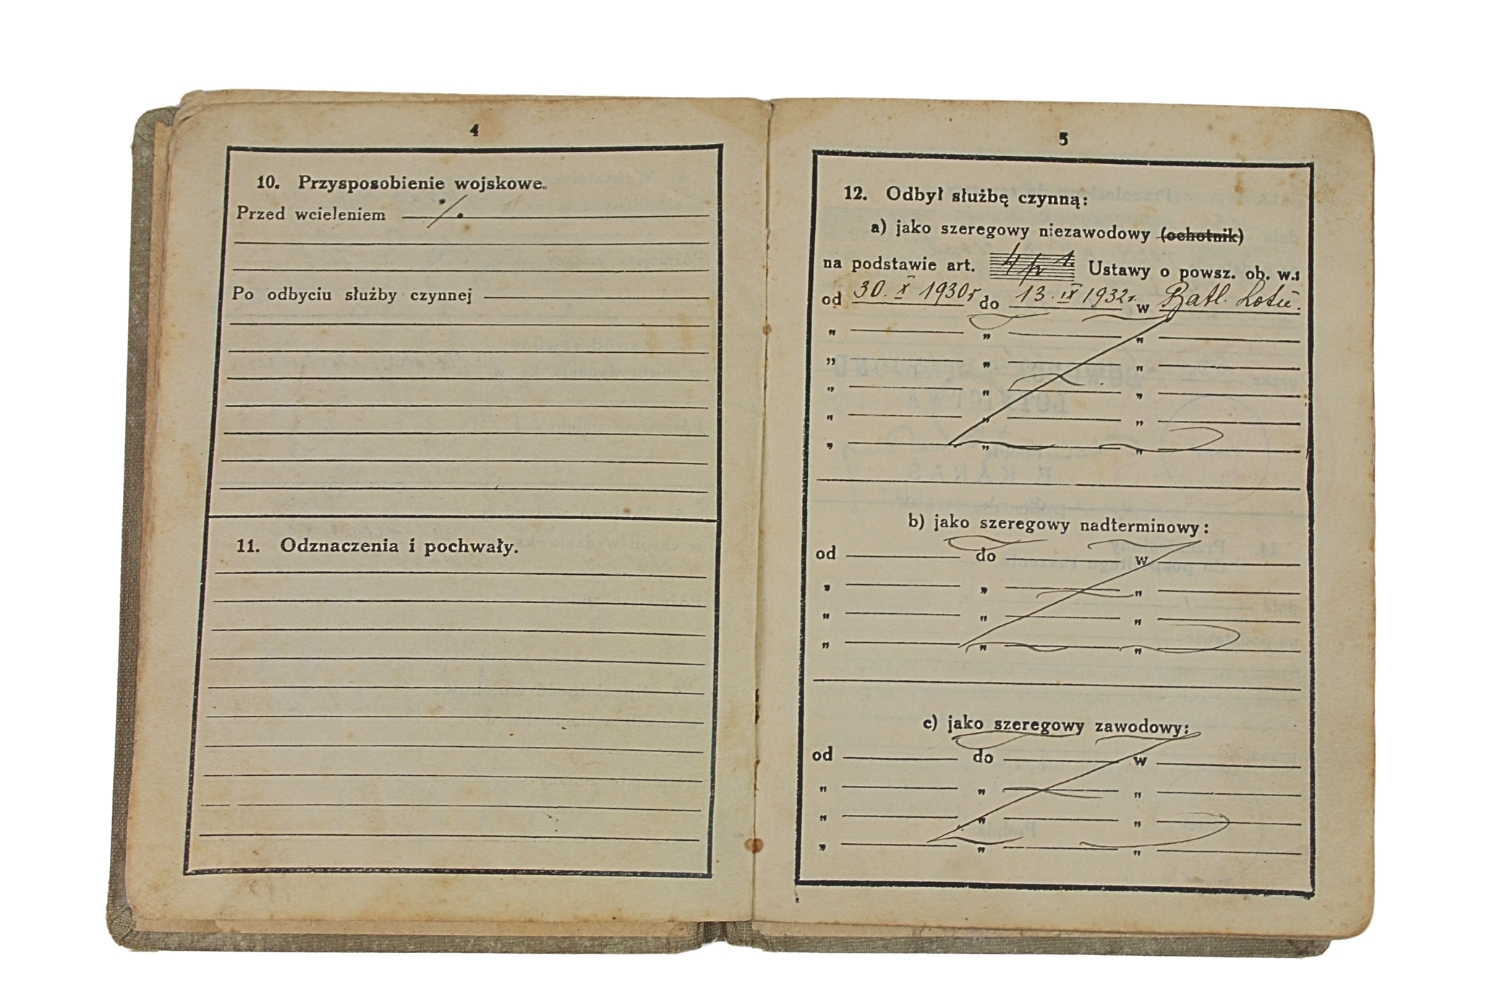 4
10. Przysposobienie wojskowe.
Przed wcieleniem ./.
Po odbyciu służby czynnej
11. Odznaczenia i pochwały.
5
12. Odbył służbę czynną:
a) jako szeregowy niezawodowy (ochotnik)
na podstawie art. Ustawy o powsz. ob. w.:
od 30. X 1930r do 13. IX 1932r. w Batl. Lotn.
„ „ „
„ „ „
„ „ „
„ „ „
„ „ „
b) jako szeregowy nadterminowy:
od do w
„ „ „
„ „ „
„ „ „
c) jako szeregowy zawodowy:
od do w
„ „ „
„ „ „
„ „ „